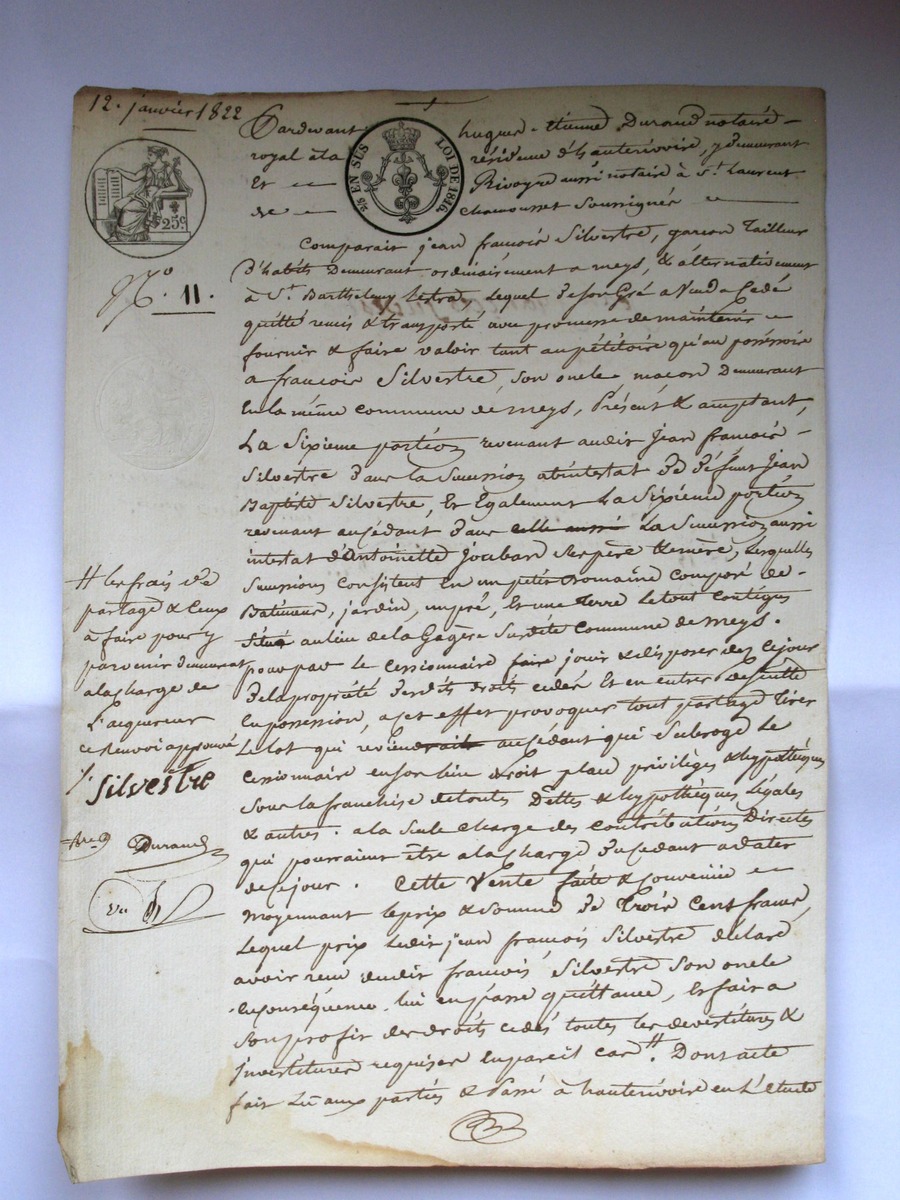 12. janvier 1822
25c.
2/5 EN SUS LOI DE 1816.
N.o 11.
Pardevant hugues - Etienne Durand notaire -
royal à la résidence d'hauterivoire, y demeurant
Et Rivoyre aussi notaire à St. Laurent
de chamousset Soussignés
Comparait jean françois Silvestre, garcon Tailleur
D'habits Demeurant ordinairement a meys, & alternativement
à St. Barthelemy Lestra, Lequel De son Gré a Vendu Cedé
quitté remis & transporté avec promesse de maintenir
fournir & faire valoir tant au pétitoire qu'au possessoire
a francois Silvestre, son oncle macon Demeurant
En la même commune de meys, Présent & acceptant,
La Sixieme portion revenant audit Jean francois -
Silvestre Dans la Succession abintestat De Défunt Jean
Baptiste Silvestre, Et Egalement La Sixieme portion
revenant au cédant Dans celle aussi La Succession aussi
intestat d'Antoinette Joubard Ses père & mère, Lesquelles
Successions Consistent En un petit Domaine composé de -
Batiment, jardin, un pré, Et une Terre Le tout contigus
Situé au lieu de la Gagère Susdite Commune de meys.
pour par le cessionnaire faire jouir & disposer dez Cejour
De la propriété Desdits droits cédés Et en entrer De suitte
En possession, a cet effet provoquer tout partage Tirer
Le lot qui reviendrait au Cédant qui Subroge Le
cessionnaire en son lieu droit place privilèges & hypothèques
Sous la franchise de toutes Dettes & hypothèques Légales
& autres. a la Seule Charge des contributions Directes
qui pourraient être a la charge Du Cedant a dater
de ce jour. Cette Vente faite & Convenue
moyennant le prix & Somme De Trois Cent francs,
Lequel prix Ledit jean françois Silvestre declare
avoir recu dudit françois Silvestre Son oncle
En conséquence lui en passe quittance, Et fait a
Son profit des droits cédés toutes les devestitures &
investitures requises En pareil cas #. Dont acte
fait Lu aux parties & Passé à hauterivoire en L'étude
# les frais de
partage & Ceux
à faire pour y
parvenir demeurent
a la charge de
L'acquereur
ce Renvoi approuvé
Silvestre
Durand